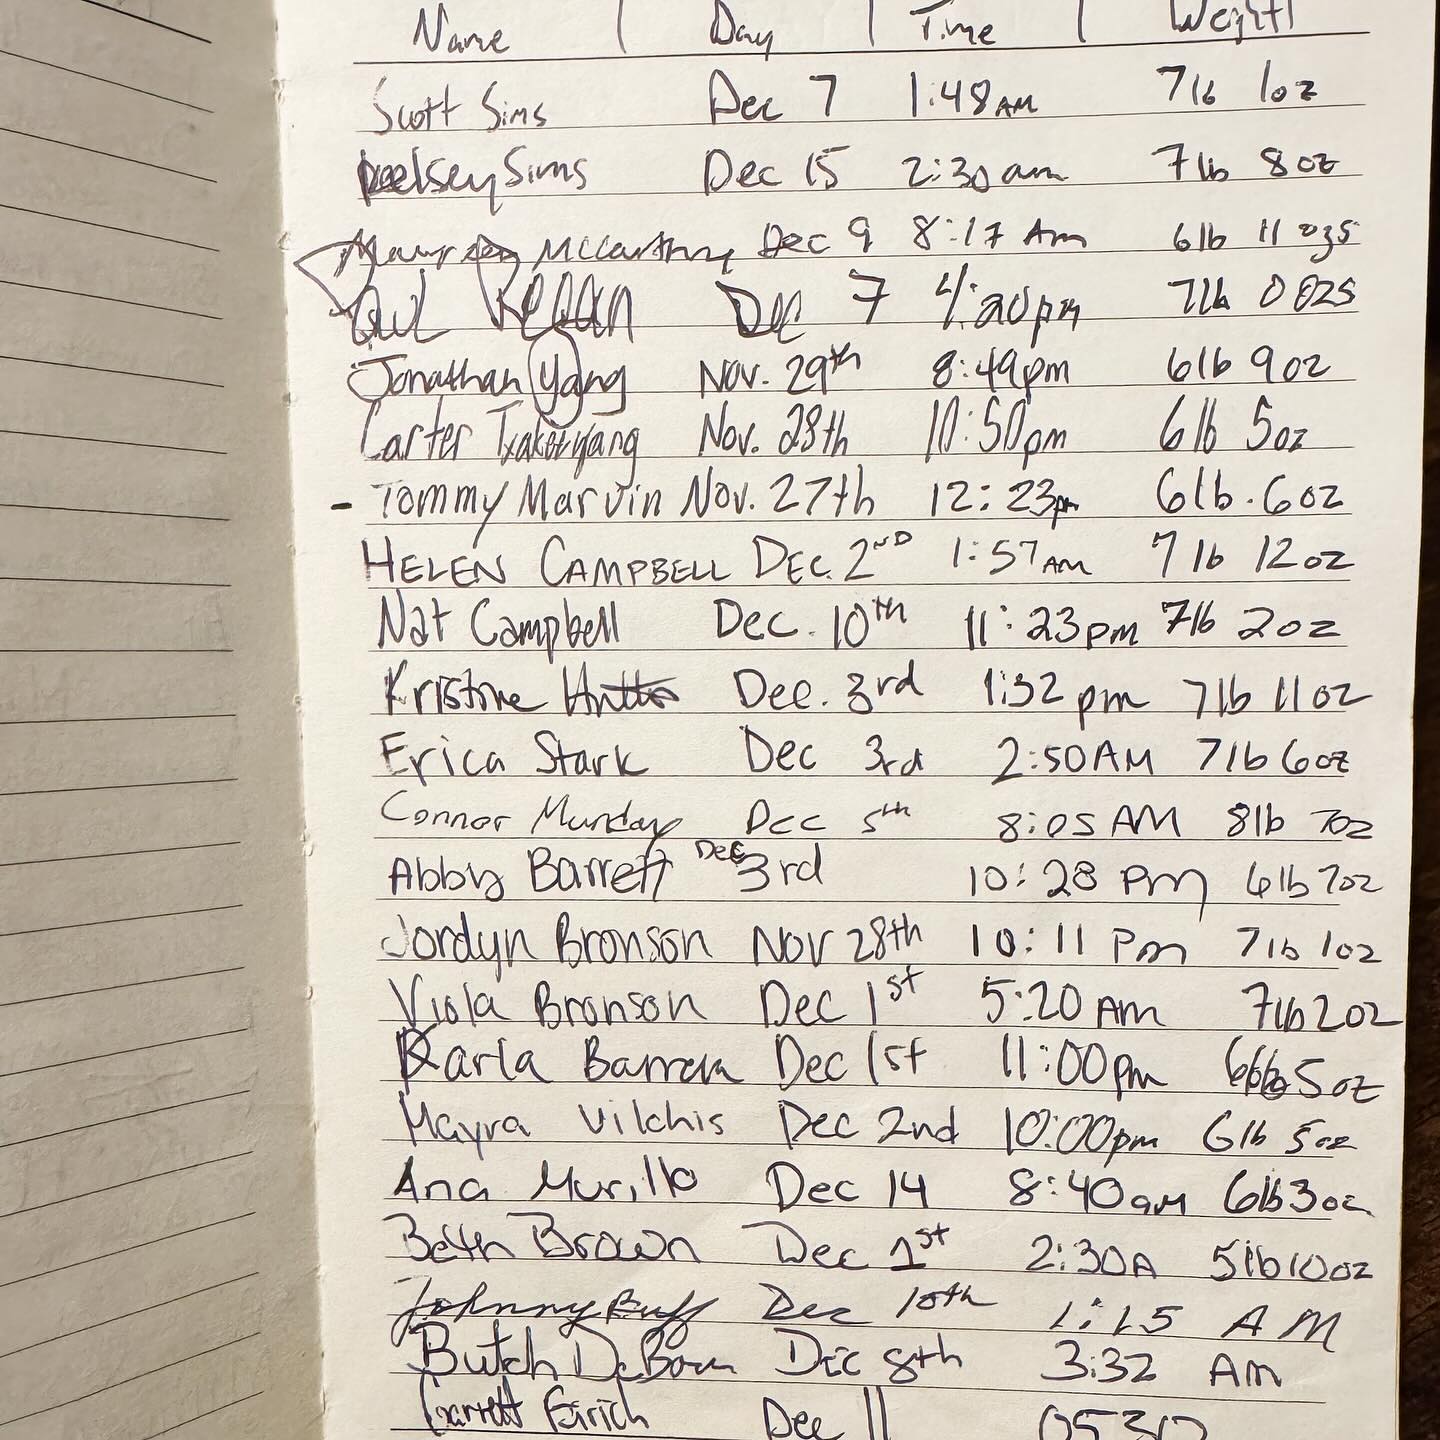 Name | Day | Time | Weight
Scott Sims Dec 7 1:48 AM 7lb 1oz
Kelsey Sims Dec 15 2:30 am 7lb 8oz
McCarthy Dec 9 8:17 Am 6lb 11 ozs
Dec 7 4:20pm 7lb 0 ozs
Jonathan Yang Nov. 29th 8:49pm 6lb 9oz
Carter Nov. 28th 10:50pm 6lb 5oz
- Tommy Marvin Nov. 27th 12:23pm 6lb. 6oz
HELEN CAMPBELL DEC. 2ND 1:57AM 7 lb 12oz
Nat Campbell Dec. 10th 11:23pm 7lb 2oz
Kristine Dec. 3rd 1:32 pm 7lb 11oz
Erica Stark Dec 3rd 2:50AM 7lb 6oz
Connor Munday Dec 5th 8:05 AM 8lb 7oz
Abby Barrett Dec 3rd 10:28 pm 6lb 7oz
Jordyn Bronson Nov 28th 10:11 Pm 7lb 1oz
Viola Bronson Dec 1st 5:20 AM 7lb 2oz
Karla Barrera Dec 1st 11:00pm 5oz
Mayra Vilchis Dec 2nd 10:00pm 6lb 5oz
Ana Murillo Dec 14 8:40am 6lb 3oz
Beth Brown Dec 1st 2:30A 5lb 10oz
Johnny Dec 10th 1:15 AM
Butch Dec 8th 3:32 AM
Garrett Dec 11